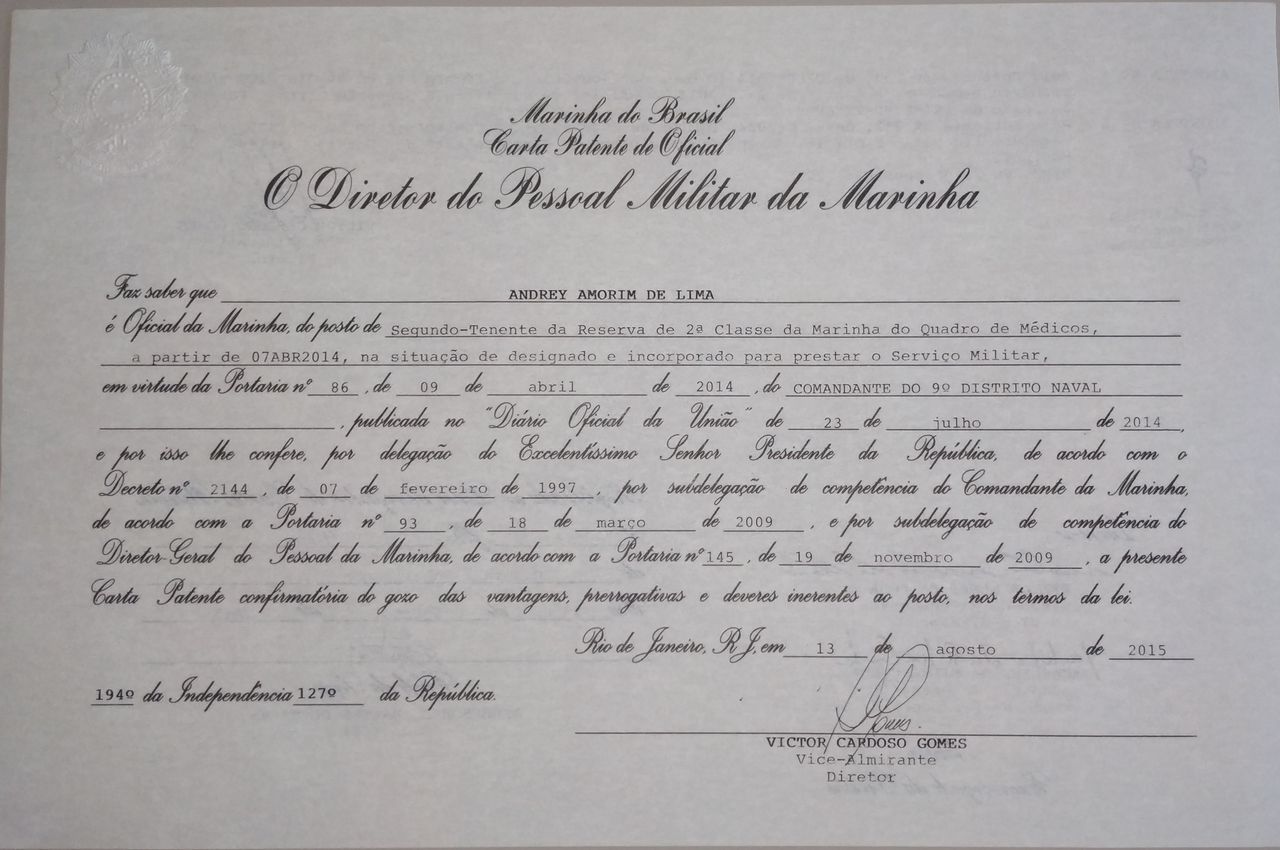 Marinha do Brasil
Carta Patente de Oficial
O Diretor do Pessoal Militar da Marinha
Faz saber que ANDREY AMORIM DE LIMA
é Oficial da Marinha, do posto de Segundo-Tenente da Reserva de 2ª Classe da Marinha do Quadro de Médicos,
a partir de 07ABR2014, na situação de designado e incorporado para prestar o Serviço Militar,
em virtude da Portaria nº 86, de 09 de abril de 2014, do COMANDANTE DO 9º DISTRITO NAVAL
, publicada no "Diário Oficial da União" de 23 de julho de 2014,
e por isso lhe confere, por delegação do Excelentíssimo Senhor Presidente da República, de acordo com o
Decreto nº 2144, de 07 de fevereiro de 1997, por subdelegação de competência do Comandante da Marinha,
de acordo com a Portaria nº 93, de 18 de março de 2009, e por subdelegação de competência do
Diretor-Geral do Pessoal da Marinha, de acordo com a Portaria nº 145, de 19 de novembro de 2009, a presente
Carta Patente confirmatória do gozo das vantagens, prerrogativas e deveres inerentes ao posto, nos termos da lei.
Rio de Janeiro, RJ, em 13 de agosto de 2015
194º da Independência 127º da República.
VICTOR CARDOSO GOMES
Vice-Almirante
Diretor